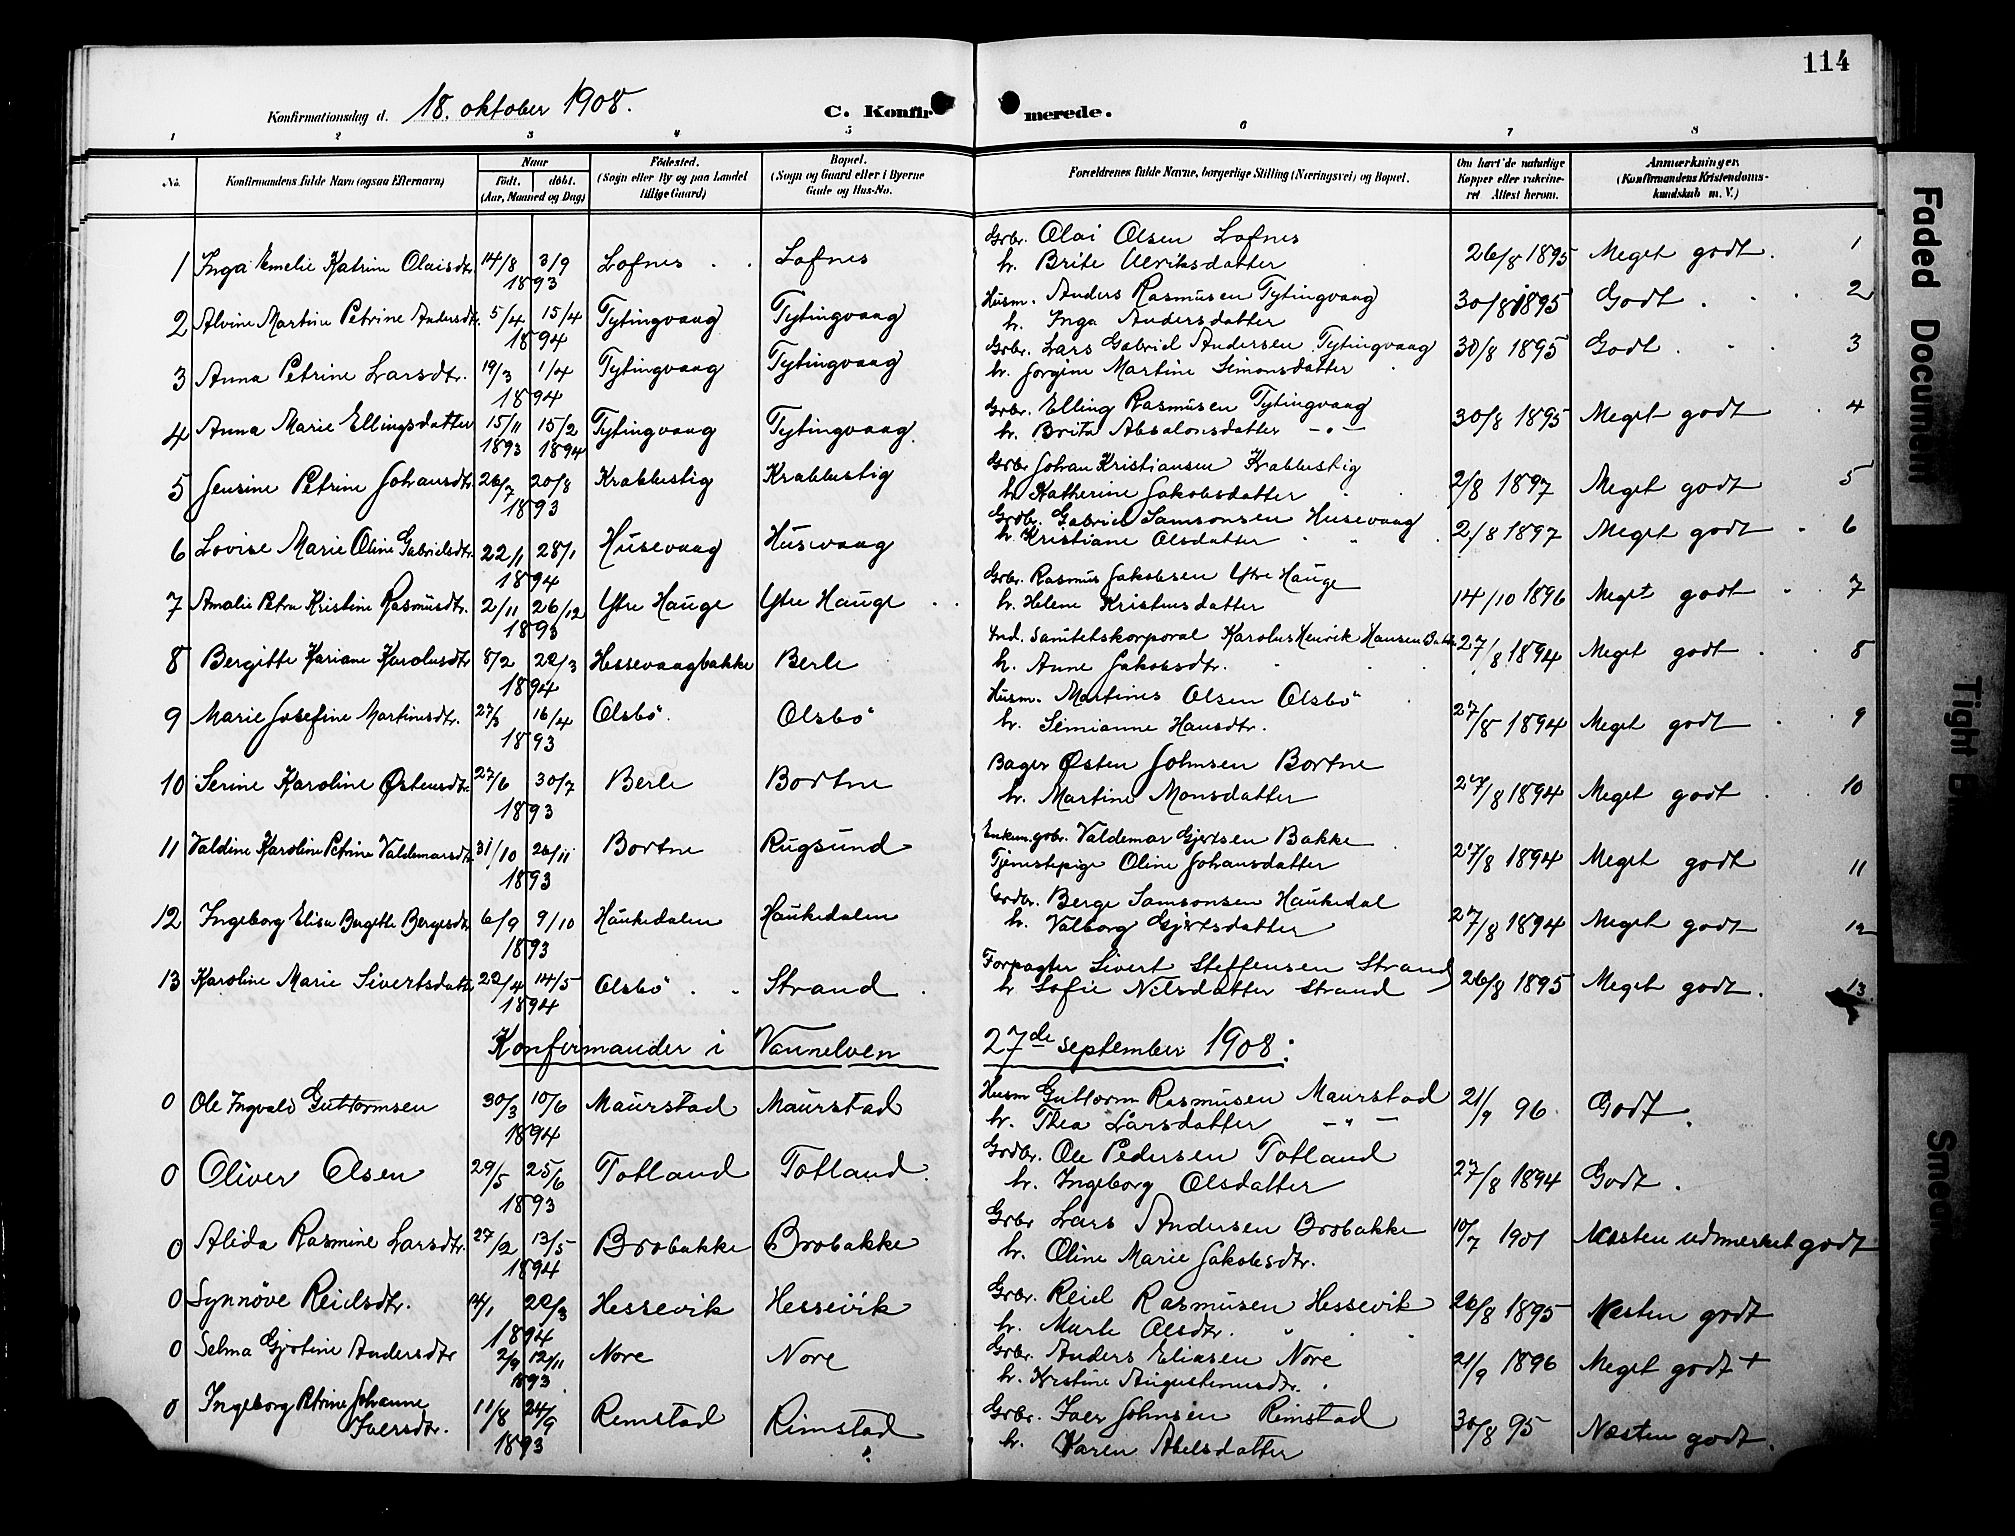 114
Konfirmationsdag d. 18. oktober 1908. C. Konfirmerede.
1 2 3 4 5 6 7 8
No. Konfirmandens fulde Navn (ogsaa Efternavn) Naar født. døbt. (Aar, Maaned og Dag) Fødested. (Sogn eller By og paa Landet tillige Gaard) Bopæl. (Sogn og Gaard eller i Byerne Gade og Hus-No. Forældrenes fulde Navne, borgerlige Stilling (Næringsvei) og Bopæl. Om havt de naturlige Kopper eller vakcineret Attest herom. Anmærkninger. (Konfirmandens Kristendomskundskab m. V.)
1 Inga Emelie Katrine Olaisdtr. 14/8 3/9 1893 Lofnes Lofnes Grbr. Olai Olsen Lofnes h. Brite Ulriksdatter 26/8 1895 Meget godt. 1
2 Alvine Martine Petrine Andersdtr. 5/4 15/4 1894 Tytingvaag Tytingvaag Husm. Anders Rasmusen Tytingvaag h. Inga Andersdatter 30/8 1895 Godt. 2
3 Anna Petrine Larsdtr. 19/3 1/4 1894 Tytingvaag Tytingvaag Grbr. Lars Gabriel Andersen Tytingvaag h. Jorgine Martine Simonsdatter 30/8 1895 Godt. 3
4 Anna Marie Ellingsdatter 15/11 1893 15/2 1894 Tytingvaag Tytingvaag. Grbr. Elling Rasmusen Tytingvaag h. Brita Absalonsdatter -"- 30/8 1895 Meget godt 4
5 Jensine Petrine Johansdtr. 26/7 20/8 1893 Krabbestig Krabbestig Grbr Johan Kristiansen Krabbestig h. Katherine Jakobsdatter 2/8 1897 Meget godt 5
6 Lovise Marie Oline Gabrielsdtr. 22/1 28/1 1894 Husevaag Husevaag Grdbr. Gabriel Samsonsen Husevaag h. Kristiane Olsdatter 2/8 1897 Meget godt 6
7 Amalie Petra Kristine Rasmusdtr. 2/11 26/12 1893 Ytre Hauge Ytre Hauge Grbr. Rasmus Jakobsen Ytre Hauge h. Helene Kristensdatter 14/10 1896 Meget godt 7
8 Bergitte Kariane Karolusdtr 8/2 22/3 1894 Hessevaagbakke Berle Ind. Sanitetskorporal Karolus Henrik Hansen h. Anne Jakobsdtr. 27/8 1894 Meget godt 8
9 Marie Josefine Martinusdtr. 27/3 16/4 1893 Olsbö. Olsbö Husm. Martines Olsen Olsbö h. Simianne Hansdtr. 27/8 1894 Meget godt 9
10 Serine Karoline Østensdtr. 27/6 30/7 1893 Berle Bortne Bager Østen Johnsen Bortne h. Martine Monsdatter 27/8 1894 Meget godt 10
11 Valdine Karoline Petrine Valdemarsdtr. 31/10 26/11 1893 Bortne Rugsund Enkem. grbr. Valdemar Gjertsen Bakke Tjenstepige Oline Johansdatter 27/8 1894 Meget godt 11
12 Ingeborg Elisa Bergitte Bergesdtr 6/9 9/10 1893 Haukedalen Haukedalen Grdbr. Berge Samsonsen Haukedal h. Valborg Gjertsdatter 27/8 1894 Meget godt 12
13 Karoline Marie Sivertsdatter 22/4 14/5 1894 Olsbö Strand Forpagter Sivert Steffensen Strand h. Sofie Nilsdatter Strand 26/8 1895 Meget godt. 13
Konfirmander i Vannelven 27de september 1908:
0 Ole Ingvald Guttormsen 30/3 10/6 1894 Maurstad Maurstad Husm Guttorm Rasmusen Maurstad h. Thea Larsdatter -"- 21/9 96 Godt.
0 Oliver Olsen 29/5 25/6 1893 Totland Totland. Grdbr. Ole Pedersen Totland h. Ingeborg Olsdatter 27/8 1894 Godt.
0 Alida Rasmine Larsdtr. 27/2 13/5 1894 Brobakke Brobakke Grbr Lars Andersen Brobakke h. Oline Marie Jakobsdtr. 10/7 1901 Næsten udmerket godt
0 Synnöve Reidsdtr. 14/1 22/3 1894 Hessevik Hessevik Grbr. Reid Rasmusen Hessevik h. Marte Olsdtr. 26/8 1895 Næsten godt
0 Selma Gjertine Andersdtr 2/9 12/11 1893 Nore Nore Grbr. Anders Eliasen Nore h. Kristine Augustinusdtr. 21/9 1896 Meget godt +
0 Ingeborg Petrine Johanne Iversdtr. 11/8 24/9 1893 Rimstad Rimstad Grbr. Iver Johnsen Rimstad h. Karen Abelsdatter 30/8 95 Næsten godt.
Faded Document
Tight
Smear